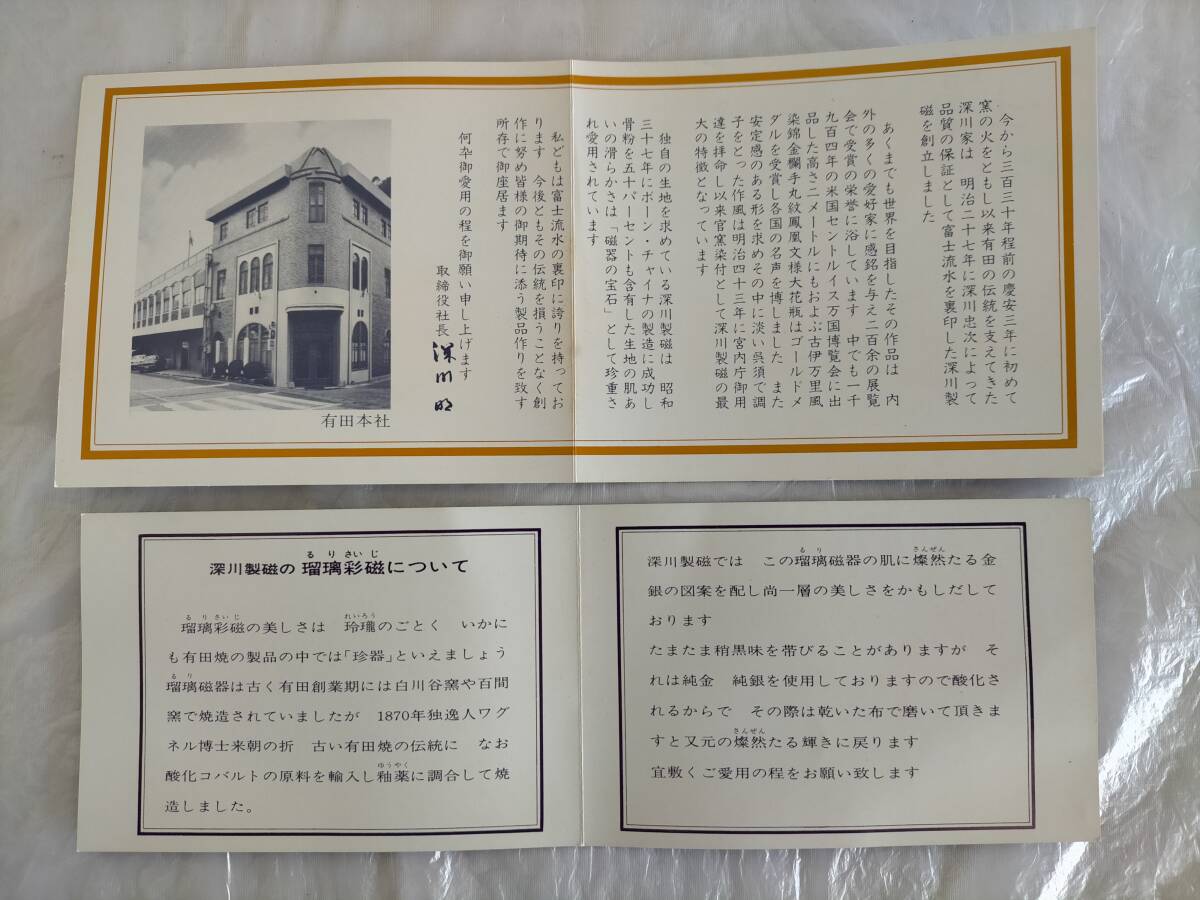 今から三百三十年程前の慶安三年に初めて
窯の火をともし以来有田の伝統を支えてきた
深川家は　明治二十七年に深川忠次によって
品質の保証として富士流水を裏印した深川製
磁を創立しました
あくまでも世界を目指したその作品は　内
外の多くの愛好家に感銘を与え二百余の展覧
会で受賞の栄誉に浴しています　中でも一千
九百四年の米国セントルイス万国博覧会に出
品した高さ二メートルにもおよぶ古伊万里風
染錦金襴手丸紋鳳凰文様大花瓶はゴールドメ
ダルを受賞し各国の名声を博しました　また
安定感のある形を求めその中に淡い呉須で調
子をとった作風は明治四十三年に宮内庁御用
達を拝命し以来官窯染付として深川製磁の最
大の特徴となっています
独自の生地を求めている深川製磁は　昭和
三十七年にボーン・チャイナの製造に成功し
骨粉を五十パーセントも含有した生地の肌あ
いの滑らかさは「磁器の宝石」として珍重さ
れ愛用されています
私どもは富士流水の裏印に誇りを持ってお
ります　今後ともその伝統を損うことなく創
作に努め皆様の御期待に添う製品作りを致す
所存で御座居ます
何卆御愛用の程を御願い申し上げます
取締役社長　深川　明
有田本社
深川製磁の 瑠璃彩磁について
るりさいじ
瑠璃彩磁の美しさは　玲瓏のごとく　いかに
るりさいじ　れいろう
も有田焼の製品の中では「珍器」といえましょう
瑠璃磁器は古く有田創業期には白川谷窯や百間
るり
窯で焼造されていましたが　1870年独逸人ワグ
ネル博士来朝の折　古い有田焼の伝統に　なお
酸化コバルトの原料を輸入し釉薬に調合して焼
ゆうやく
造しました。
深川製磁では　この瑠璃磁器の肌に燦然たる金
るり　さんぜん
銀の図案を配し尚一層の美しさをかもしだして
おります
たまたま稍黒味を帯びることがありますが　そ
れは純金　純銀を使用しておりますので酸化さ
れるからで　その際は乾いた布で磨いて頂きま
すと又元の燦然たる輝きに戻ります
さんぜん
宜敷くご愛用の程をお願い致します